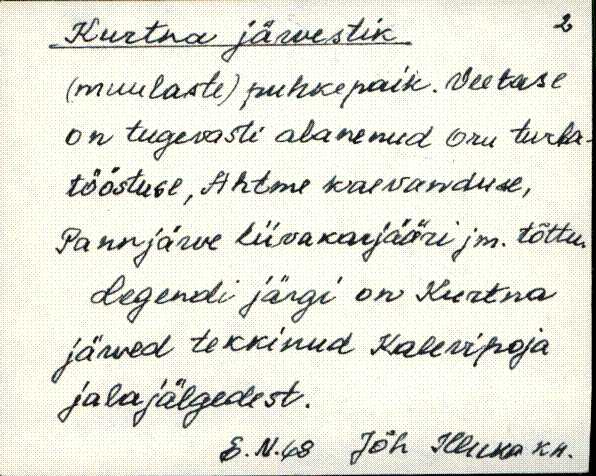 2
Kurtna järvestik
(muulaste) puhkepaik. Veetase
on tugevasti alanenud Oru turba-
tööstuse, Ahtme kaevanduse,
Pannjärve liivakarjääri jm. tõttu.
Legendi järgi on Kurtna
järved tekkinud Kalevipoja
jalajälgedest.
E.N.68 Jõh Illuka kn.